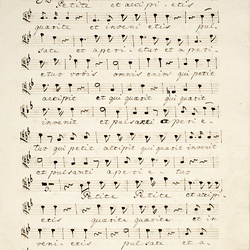 Petite et accipi - etis
quærite et inveni etis pul
sate et aperi - etur et aperi
etur vobis omnis enim qui petit
accipit et qui quærit qui quærit
invenit et pulsanti peri e
tur qui petit accipit qui quærit invenit
et pulsanti aperi e - tur
Petite Petite et accipi
etis quærite quærite et in
veni - etis pulsate et a